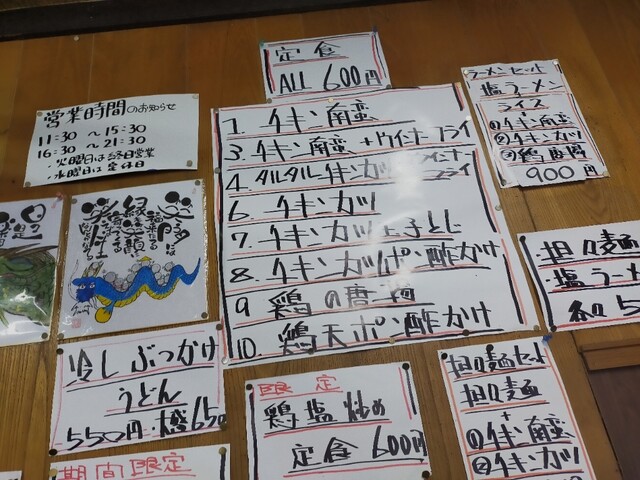 定食
ALL 600円
営業時間のお知らせ
11:30 〜 15:30
16:30 〜 21:30
・火曜日は終日営業
・水曜日は定休日
1. チキン南蛮
3. チキン南蛮+ウインナーフライ
4. タルタルチキンカツ
6. チキンカツ
7. チキンカツ玉子とじ
8. チキンカツポン酢がけ
9 鶏の唐揚
10. 鶏天ポン酢かけ
ラーメンセット
塩ラーメン
ライス
①チキン南蛮
②チキンカツ
③鶏唐揚
900円
・担々麺
・塩ラー
冷しぶっかけ
うどん
550円・大盛650
限定
鶏塩炒め
定食 600円
担々麺セット
担々麺
+
①チキン南蛮
②チキンカツ
期間限定